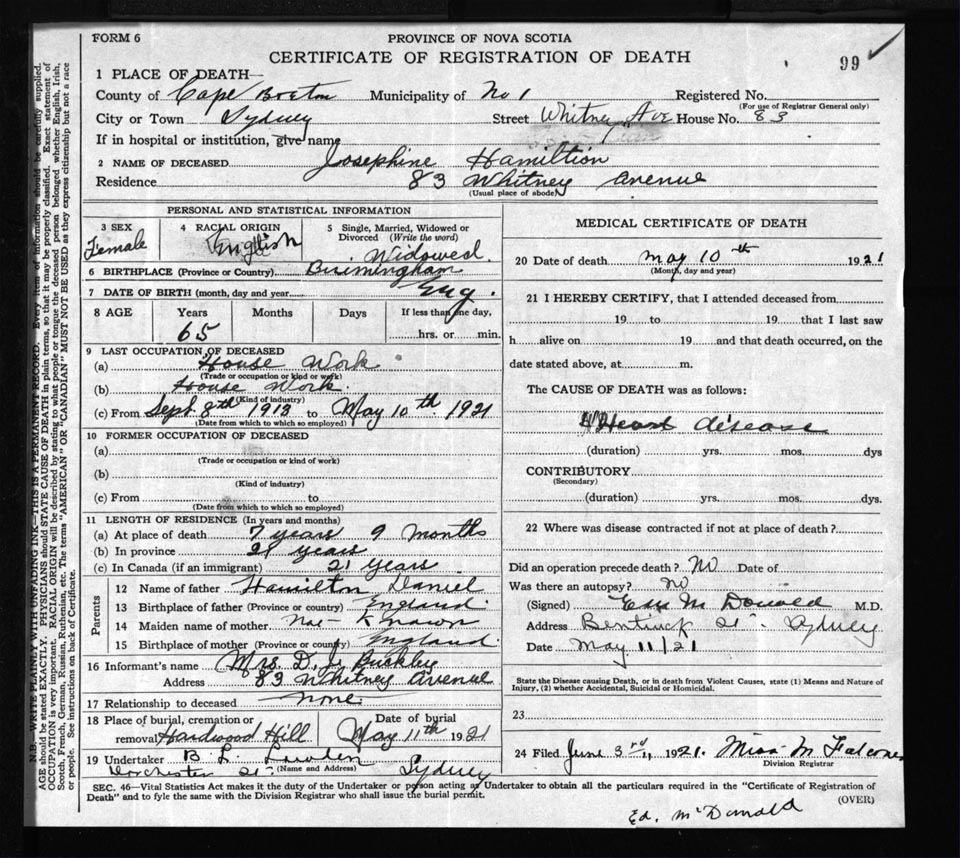 FORM 6
PROVINCE OF NOVA SCOTIA
CERTIFICATE OF REGISTRATION OF DEATH
99
1 PLACE OF DEATH—
County of Cape Breton Municipality of No 1 Registered No.
(For use of Registrar General only)
City or Town Sydney Street Whitney Ave House No. 83
If in hospital or institution, give name
2 NAME OF DECEASED Josephine Hamiltion
Residence 83 Whitney Avenue
(Usual place of abode)
PERSONAL AND STATISTICAL INFORMATION
3 SEX Female
4 RACIAL ORIGIN English
5 Single, Married, Widowed or Divorced (Write the word) Widowed
6 BIRTHPLACE (Province or Country) Birimingham
Eng.
7 DATE OF BIRTH (month, day and year)
8 AGE Years Months Days If less than one day,
65 hrs. or min.
9 LAST OCCUPATION OF DECEASED
(a) House Work
(Trade or occupation or kind or work)
(b) House Work
(Kind of industry)
(c) From Sept. 8th 1913 to May 10th 1921
(Date from which to which so employed)
10 FORMER OCCUPATION OF DECEASED
(a)
(Trade or occupation or kind of work)
(b)
(Kind of industry)
(c) From to
(Date from which to which so employed)
11 LENGTH OF RESIDENCE (In years and months)
(a) At place of death 7 years 9 months
(b) In province 21 years
(c) In Canada (if an immigrant) 21 years
Parents
12 Name of father Hamilton Daniel
13 Birthplace of father (Province or country) England
14 Maiden name of mother Not Known
15 Birthplace of mother (Province or country) England
16 Informant's name Mrs. D. J. Buckley
Address 83 Whitney Avenue
17 Relationship to deceased none
18 Place of burial, cremation or removal Hardwood Hill
Date of burial May 11th 1921
19 Undertaker B. L.
(Name and Address)
Dorchester St. Sydney
MEDICAL CERTIFICATE OF DEATH
20 Date of death May 10th 1921
(Month, day and year)
21 I HEREBY CERTIFY, that I attended deceased from
19 to 19 that I last saw
h alive on 19 and that death occurred, on the
date stated above, at m.
The CAUSE OF DEATH was as follows:
Heart disease
(duration) yrs. mos. dys
CONTRIBUTORY
(Secondary)
(duration) yrs. mos. dys.
22 Where was disease contracted if not at place of death?
Did an operation precede death? No Date of
Was there an autopsy? No
(Signed) McDonald M.D.
Address Bentinck St. Sydney
Date May 11/21
State the Disease causing Death, or in death from Violent Causes, state (1) Means and Nature of
Injury, (2) whether Accidental, Suicidal or Homicidal.
23
24 Filed June 3rd, 1921. Miss M Falconer
Division Registrar
SEC. 46—Vital Statistics Act makes it the duty of the Undertaker or person acting as Undertaker to obtain all the particulars required in the "Certificate of Registration of
Death" and to fyle the same with the Division Registrar who shall issue the burial permit.
(OVER)
Ed. McDonald
N.B. WRITE PLAINLY WITH UNFADING INK—THIS IS A PERMANENT RECORD. Every item of information should be carefully supplied.
AGE should be stated EXACTLY. PHYSICIANS should STATE CAUSE OF DEATH in plain terms, so that it may be properly classified. Exact statement of
OCCUPATION is very important. RACIAL ORIGIN will be described by stating to what people or tongue the deceased person belonged whether English, Irish,
Scotch, French, German, Russian, Ruthenian, etc. The terms "AMERICAN" OR "CANADIAN" MUST NOT BE USED as they express citizenship but not a race
or people. See instructions on back of Certificate.